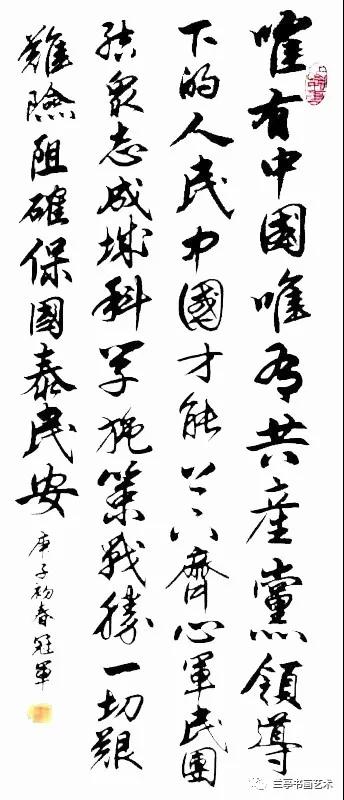 唯有中國唯有共産黨領導
下的人民中國才能上下齊心軍民團
結衆志成城科學施策戰勝一切艱
難險阻確保國泰民安
庚子初春冠軍
兰亭书画艺术